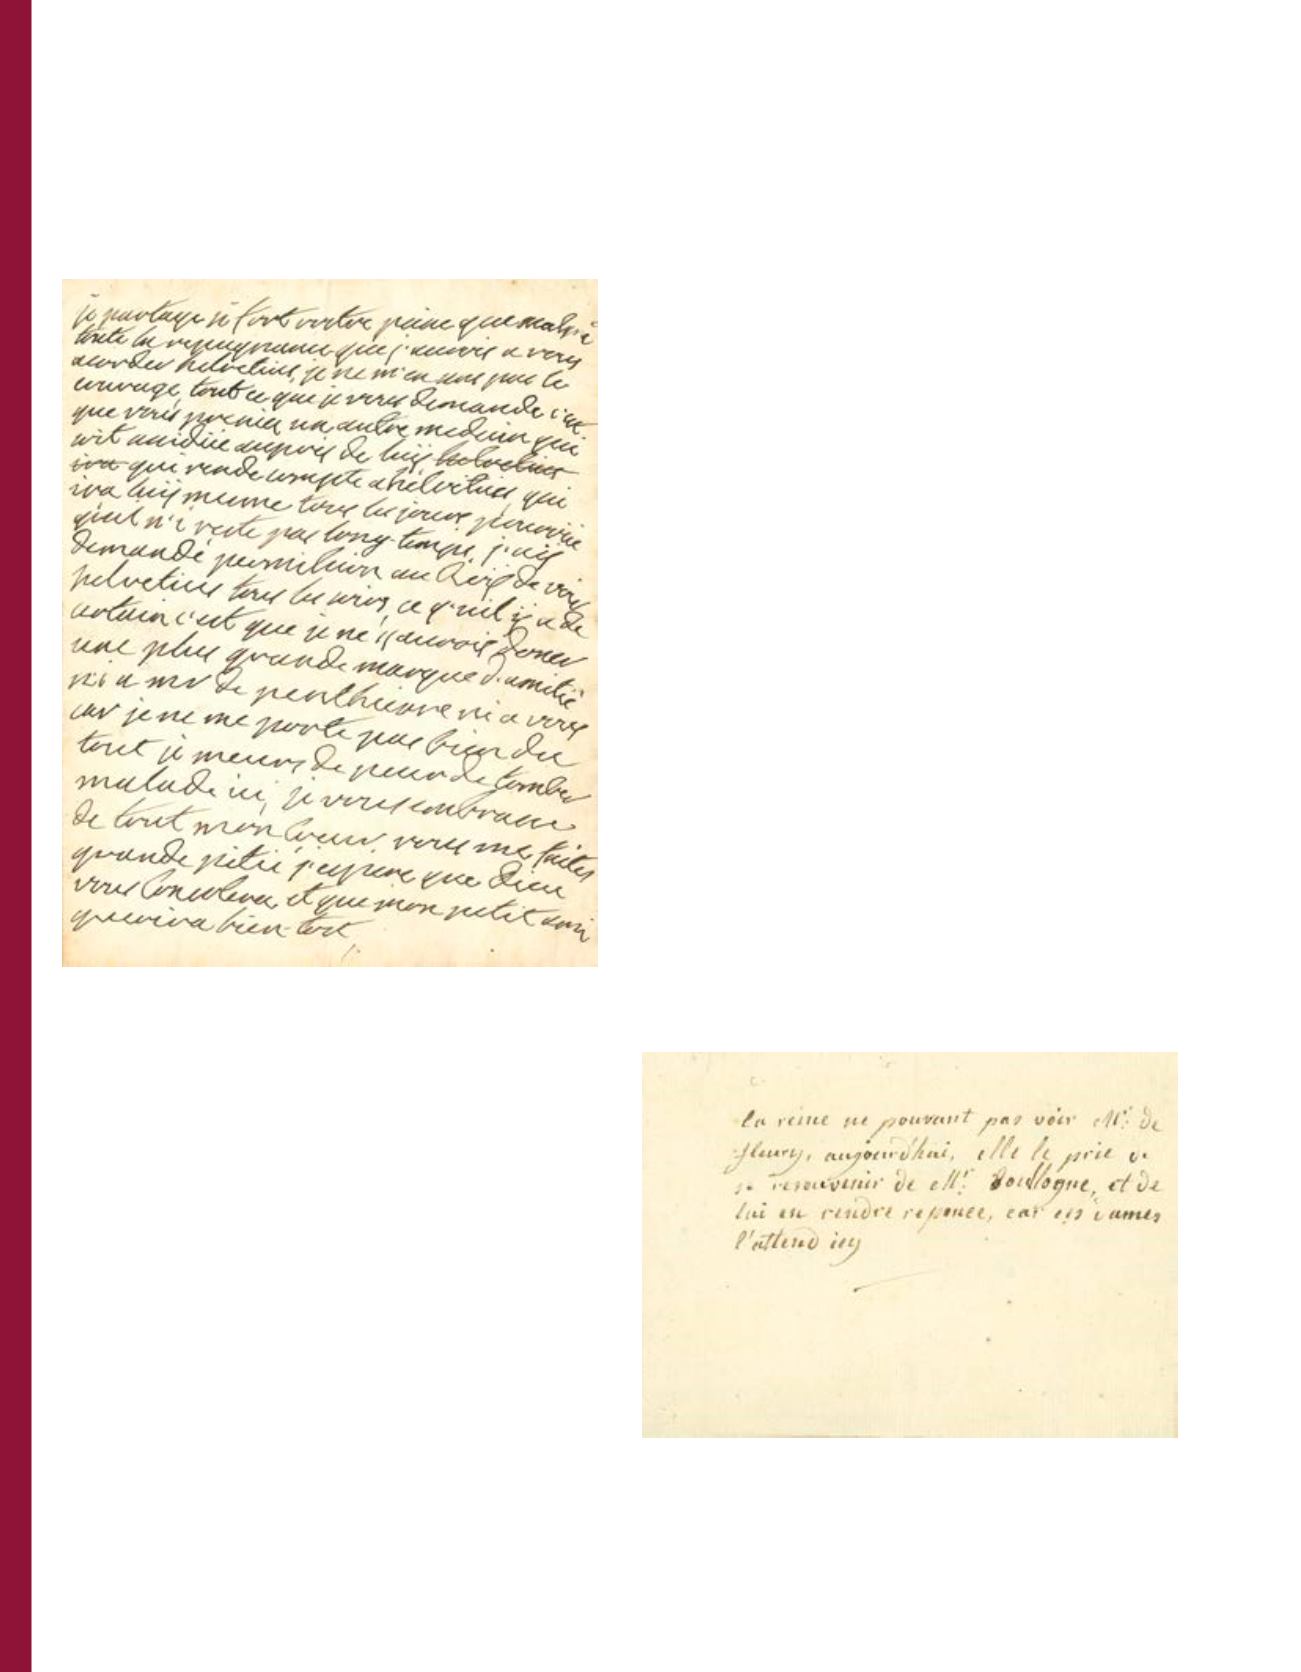 je partage si fort vostre peine que malgré
toute la repugnance que j'aurois a vous
acorder helvetius, je ne m'en sens pas le
courage, tout ce que je vous demande c'est
que vous prenies un autre medecin qui
soit assidüe aupres de luÿ helvetius
ira qui rende compte a helvetius, qui
ira luÿ mesme tous les jours pourvüe
qu'il n'i reste pas long-temps, j'aÿ
demandé permission au Roÿ de voir
helvetius tous les soirs, ce q'uil ÿ a de
certain c'est que je ne sçaurois doner
une plus grande marque d'amitié
ni a mr de penthievre ni a vous
car je ne me porte pas bien du
tout je meurs de peur de tomber
malade ici, je vous embrasse
de tout mon coeur, vous me faites
grande pitié j'espere que Dieu
vous consolera, et que mon petit ami
guerira bien-tost
la reine ne pouvant pas voir Mr. de
fleury, aujourd'hui, elle le prie de
se resouvenir de Mr. Boullogne, et de
lui en rendre reponce, car ces dames
l'attend icy